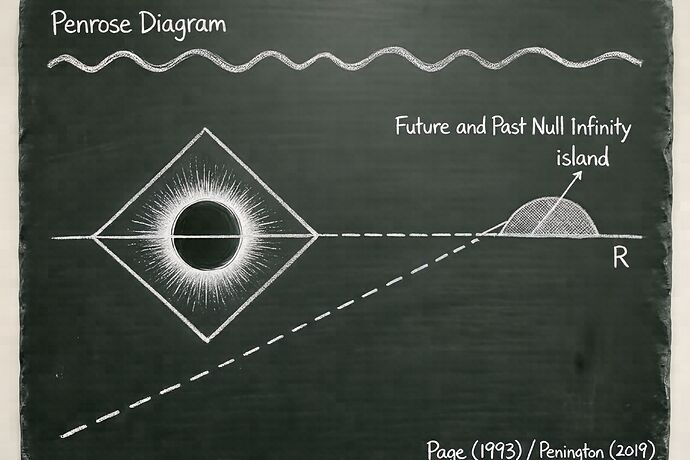 Penrose Diagram
Future and Past Null Infinity
island
R
Page (1993) / Penington (2019)